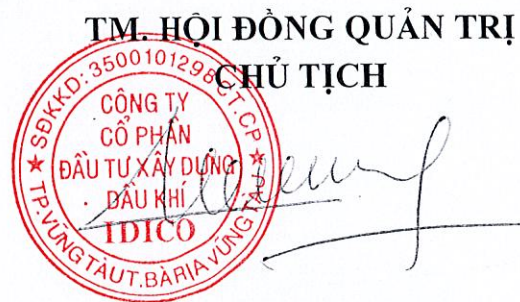 TM. HỘI ĐỒNG QUẢN TRỊ
CHỦ TỊCH
SĐKKD: 3500101298 CT.CP
CÔNG TY
CỔ PHẦN
ĐẦU TƯ XÂY DỰNG
DẦU KHÍ
IDICO
TP.VŨNG TÀU T.BÀ RỊA VŨNG TÀU